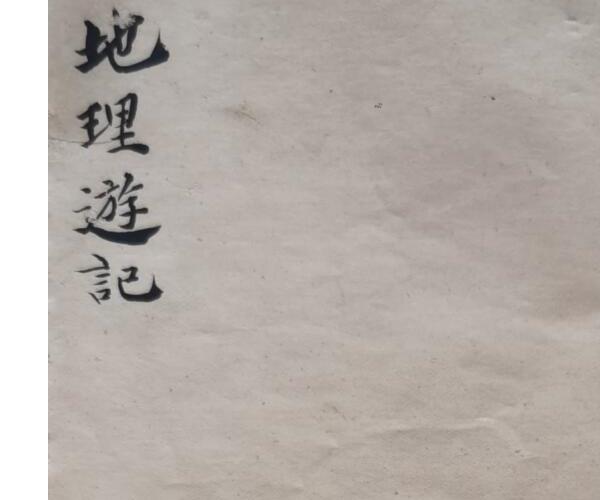 地理遊記